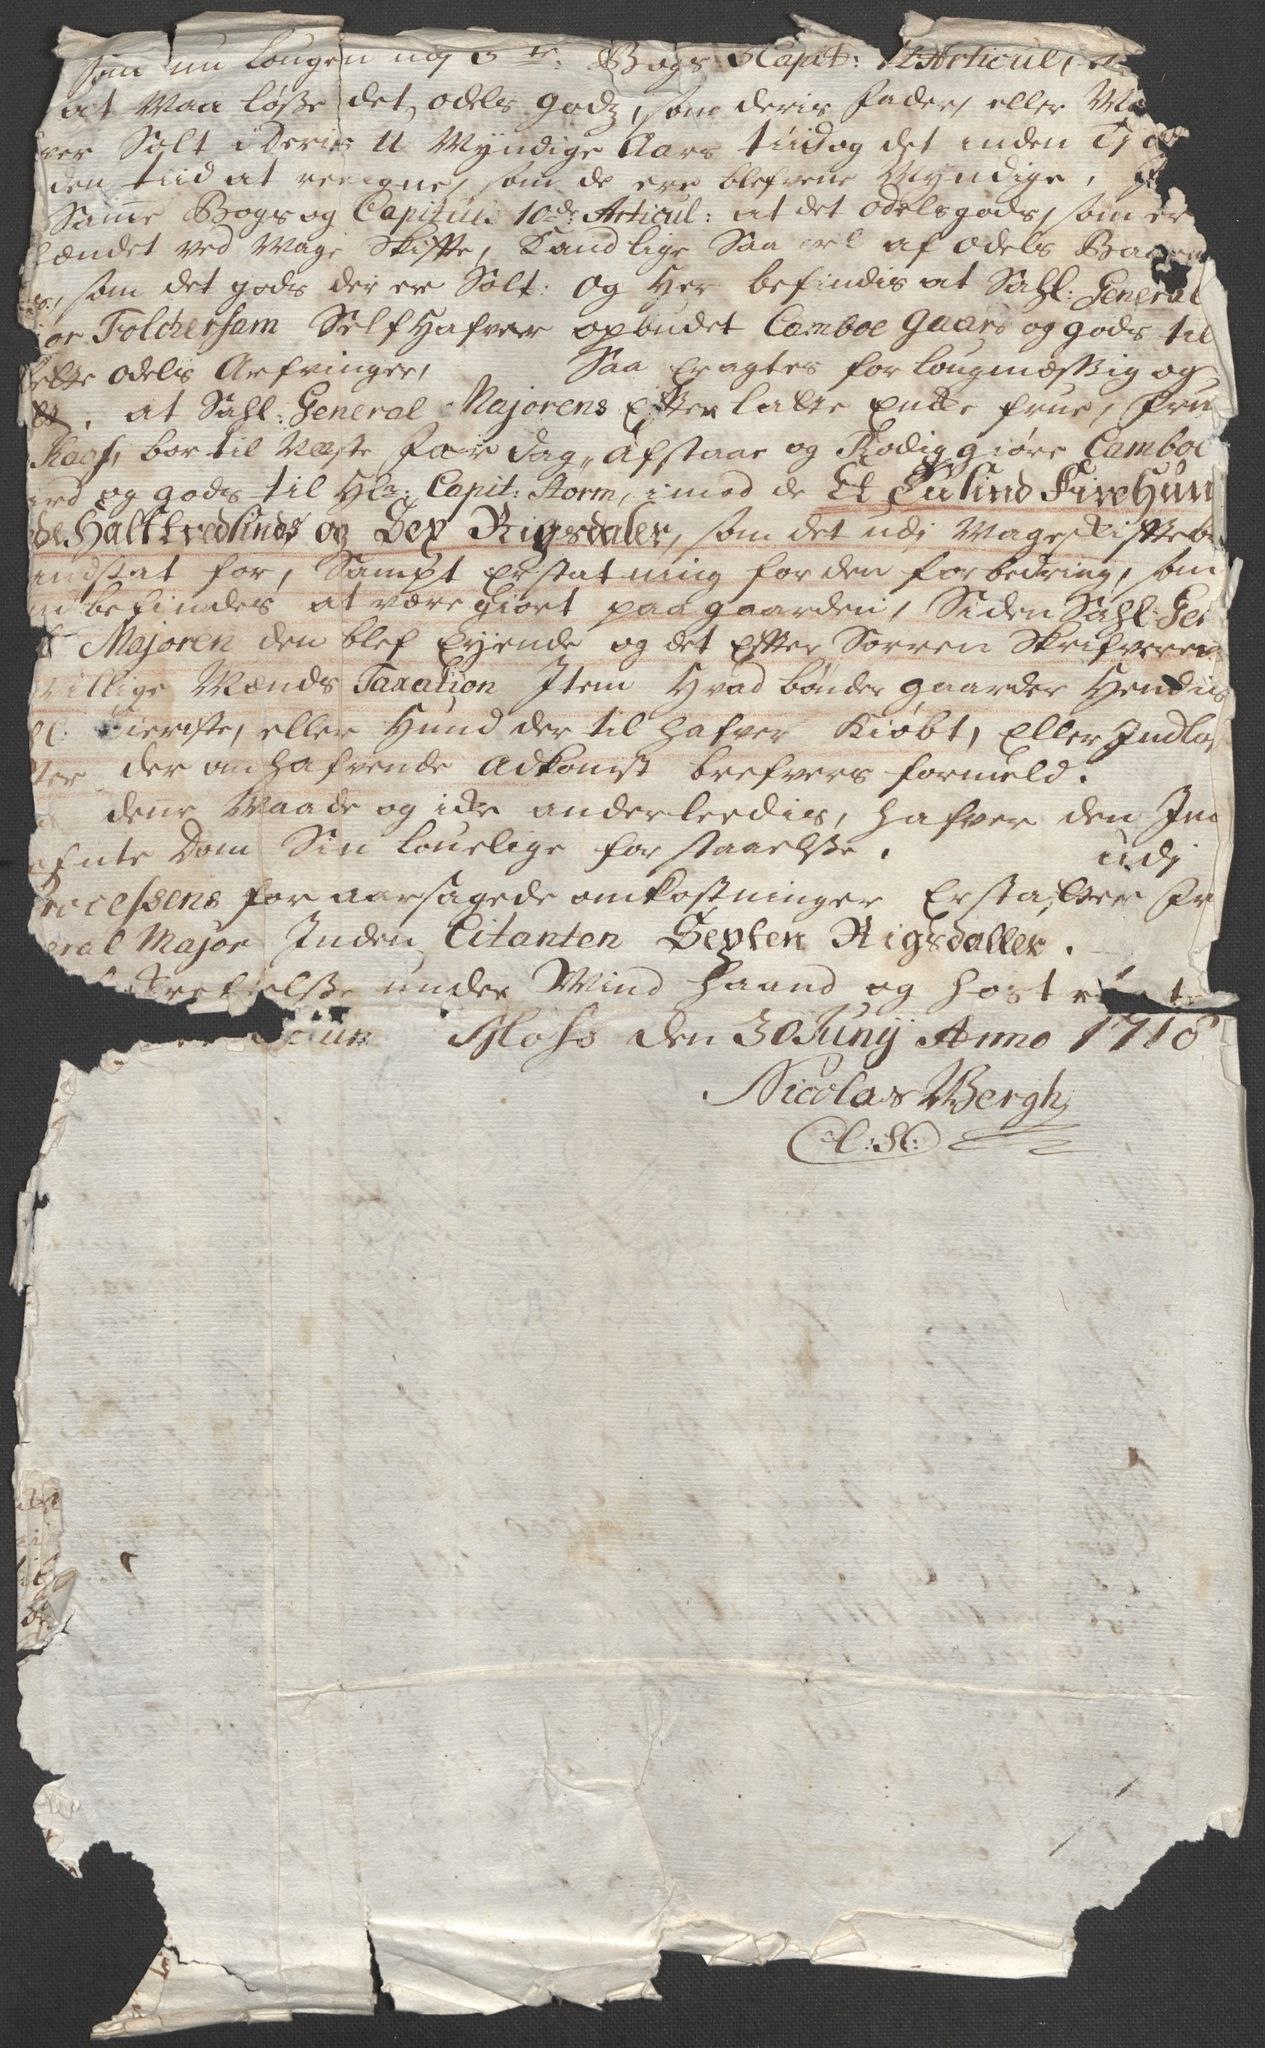 Som nu Lougen udj 5te: Bogs 3 Capit: 12 Articul,
at Maa løsse det odels godz, som deris Fader, eller Mo
ver Solt i deris u Myndige Aars tiid og det inden
den tiid at reigne, som de ere blefvene Myndige,
Samme Bogs og Capitul: 10de Articul: at det odelsgods, som er
hændet ved Mage Skiffte, Kand lige Saa vel af odels Baar
som det gods der er Solt: Og Her befindis at Sahl: General
or Folchersam Self Hafver opbudet Camboe Gaard og gods til
rette odels Arfvinger, Saa Eragtes for lougmæssig og
at Sahl: General Majorens Efterlatte Encke Frue, Fru
Kaas, bør til Næste Far dag, Afstaae og Rødiggiøre Camboe
ard og gods til Hr: Capit: Storm, imod de Et Tusind Fire Hun
de Halftredsinds og Sex Rigsdaler, som det udj Mageskifftebr
indsat for, Sampt Erstatning for den forbedring, som
befindes at være giort paa gaarden, Siden Sahl: Gen
Majoren den blef Eyende og det Efter Sorren Skrifveren
villige Mænds Taxation Item Hvad bønder gaarder Hendis
Kierste, eller Hund der til hafver Kiøbt, Eller Indlø
ter der om hafvende Adkomst brefvers formeld.
denne Maade og icke anderleedis, hafver den In
efnte Dom Sin Louelige for staaelsse. udj
Processens foraarsagede omkostninger Erstatter Fr
eral Major Inden Citanten Sexten Rigsdaller.
under Mind Haand og hos trøgte
Moss den 30 Junij Anno 1718
Nicolas Bergh
(L:S:)